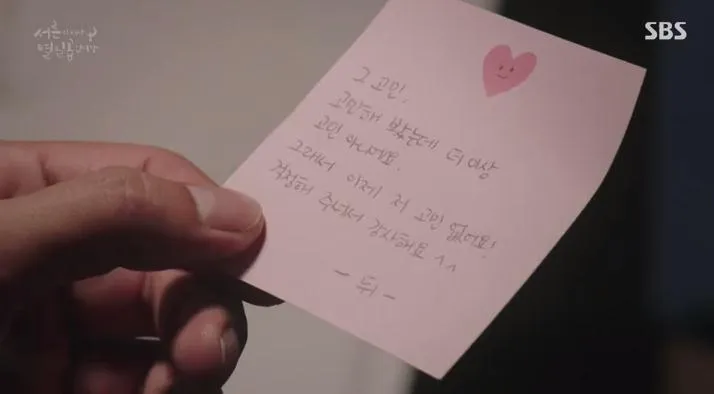 서른이지만
열일곱입니다
SBS
그 고민.
고민해 봤는데 더 이상
고민 아니에요.
그래서 이제 저 고민 없어요!
걱정해 주셔서 감사해요^^
- 뒤 -